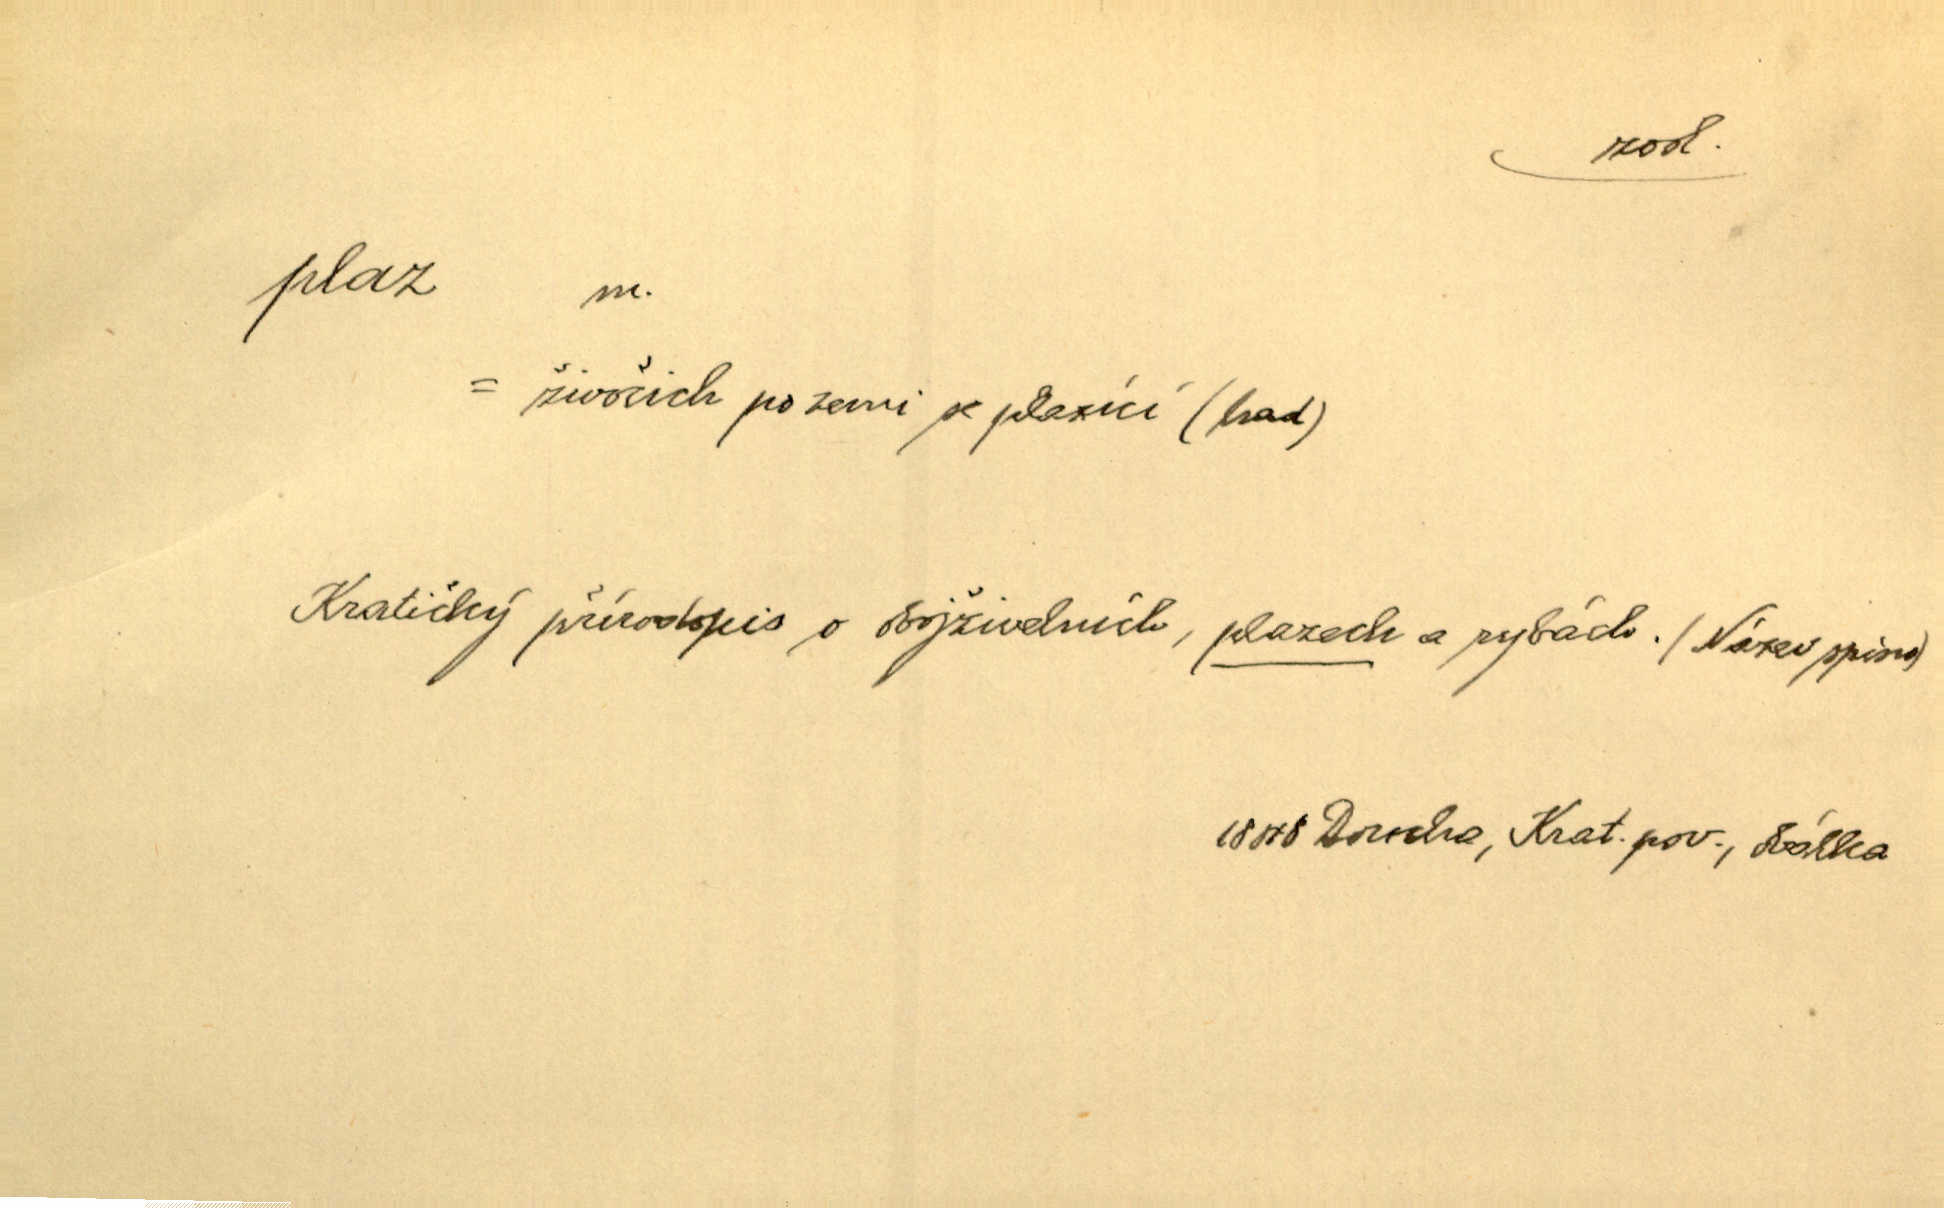 zool.
plaz m.
= živočich po zemi se plazící (had)
Kratičký přírodopis o obojživelních, plazech a rybách. (Název spisu)
1848 Doucha, Krat. pov., obálka